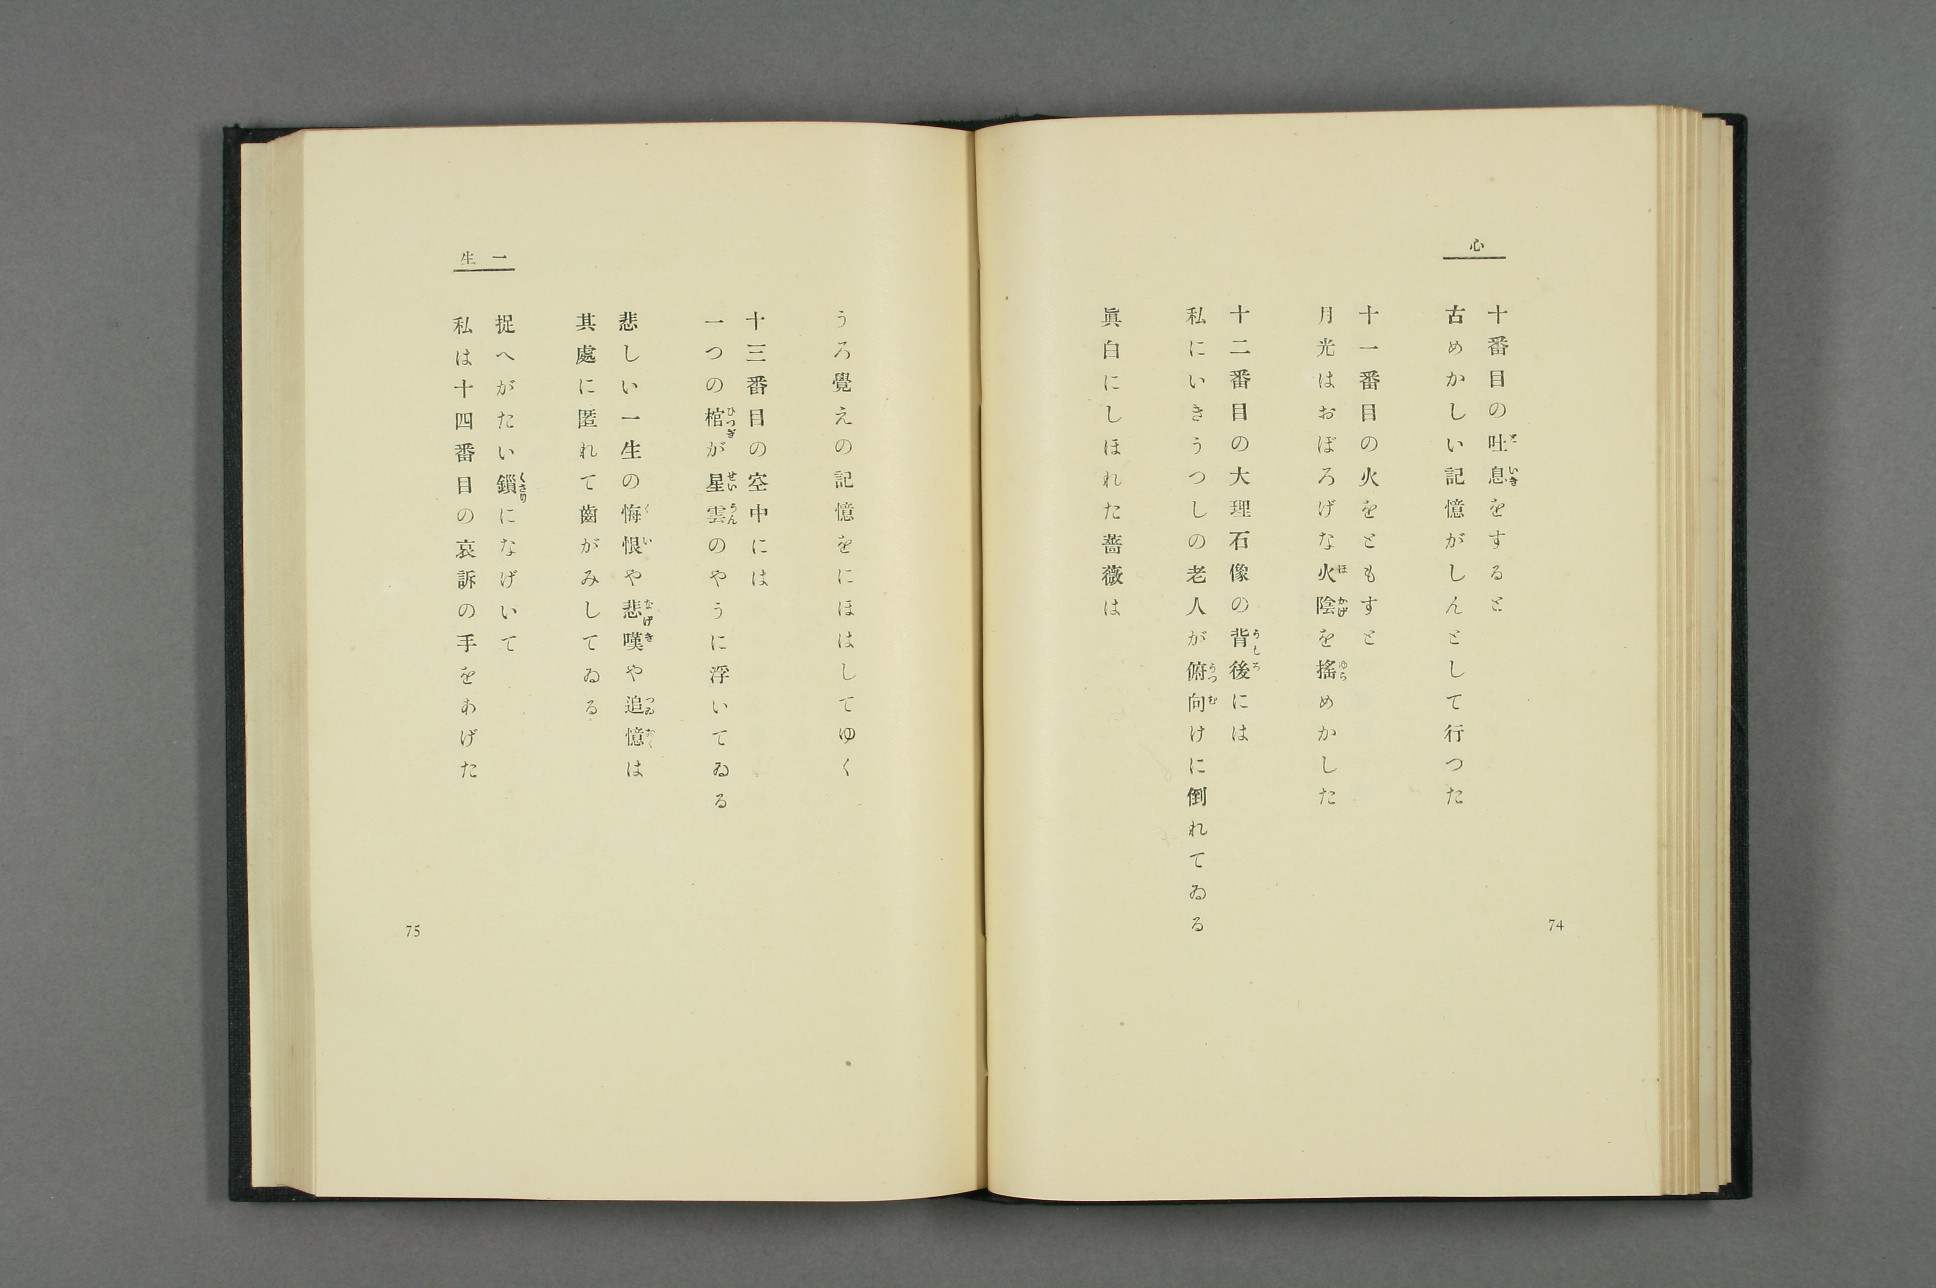 心
十番目の吐息をすると
古めかしい記憶がしんとして行つた
十一番目の火をともすと
月光はおぼろげな火陰を搖めかした
十二番目の大理石像の背後には
私にいきうつしの老人が俯向けに倒れてゐる
眞白にしほれた薔薇は
74
一生
うろ覺えの記憶をにほはしてゆく
十三番目の空中には
一つの棺が星雲のやうに浮いてゐる
悲しい一生の悔恨や悲嘆や追憶は
其處に匿れて齒がみしてゐる
捉へがたい鎻になげいて
私は十四番目の哀訴の手をあげた
75